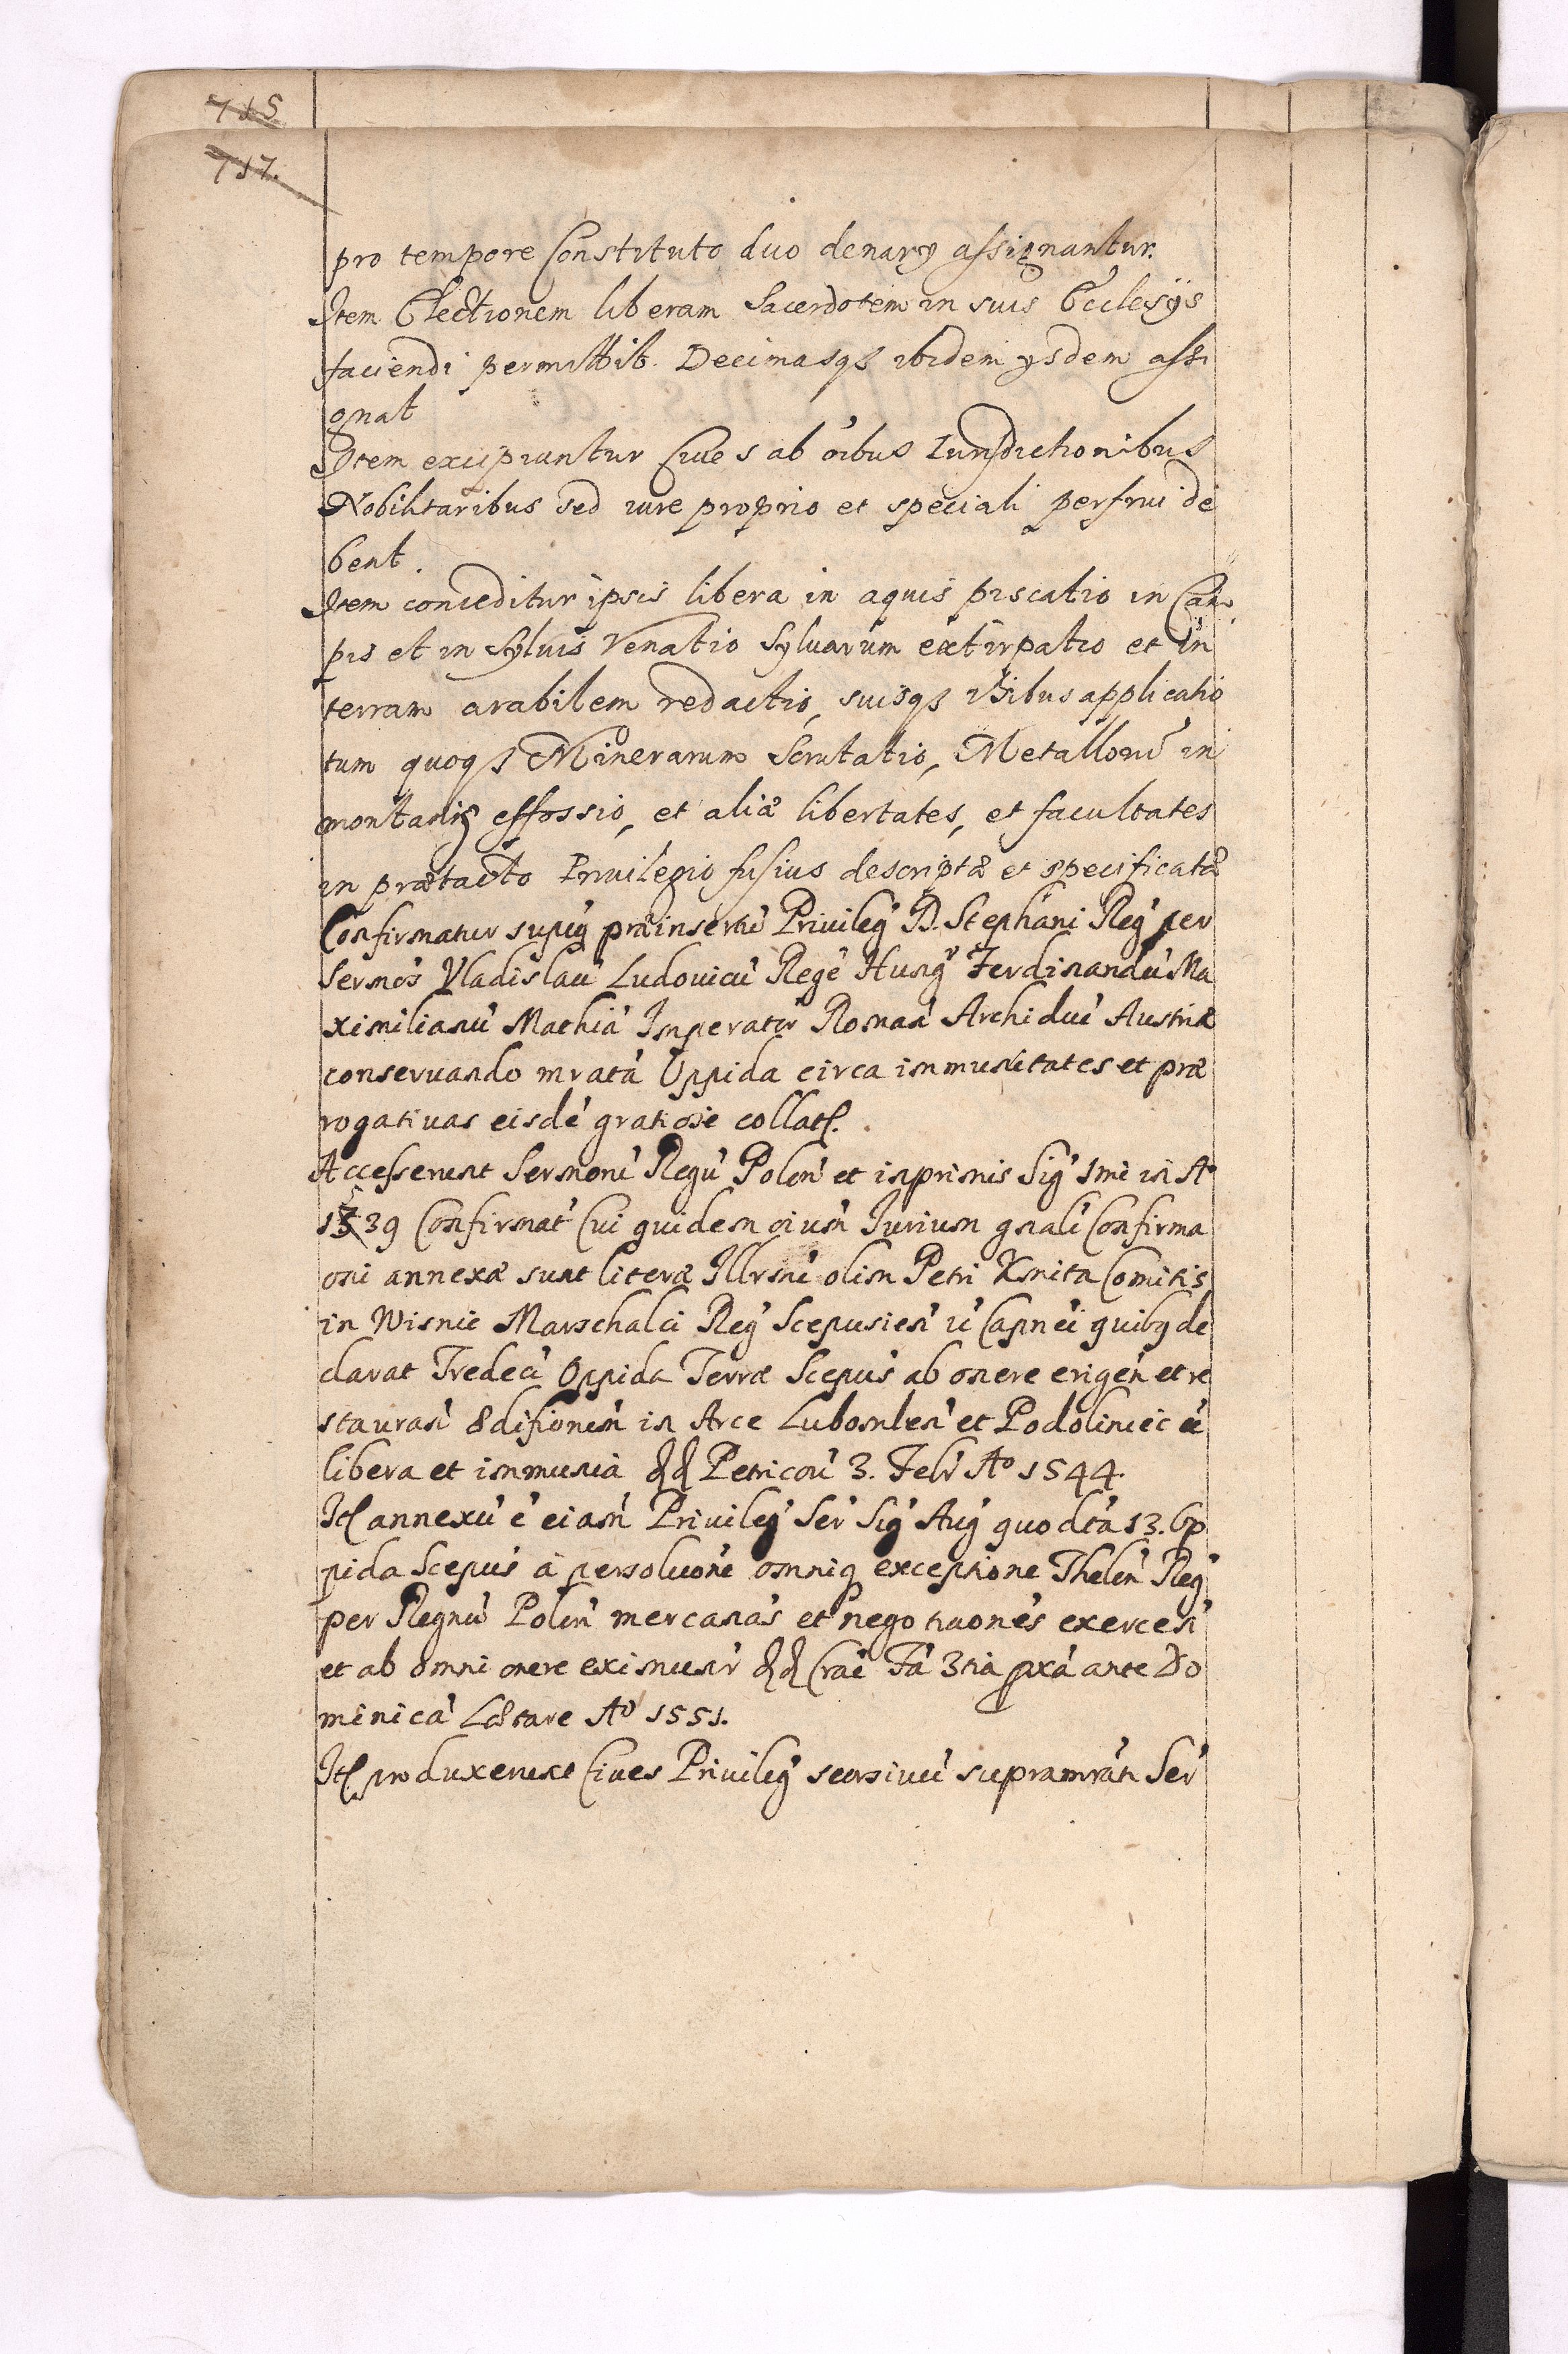 715
717.
pro tempore Constituto duo denarÿ assignantur.
Item Electionem liberam Sacerdotem in suis Ecclesÿs
faciendi permittit. Decimasqȝ ibidem ÿsdem assi
gnat
Item excipiuntur Ciues ab oíbus Iurisdictionibus
Nobilitaribus sed iure proprio et speciali perfrui de
bent.
Item conceditur ipsis libera in aquis piscatio in Cam
pis et in syluis Venatio Syluarum extirpatio et in
terram arabilem redactio, suisqȝ Vsibus applicatio
tum quoqȝ Minerarum Scrutatio, Metalloru' in
montanis effossio, et aliæ libertates, et facultates
in prætacto Priuilegio fusius descriptæ et specificatæ
Confirmatur præinsertu' Priuileg' D. Stephani Reg' per
Sermos Vladislau' Ludouicu' Rege' Hung' Ferdinandu' Ma
ximilianu' Mathia' Imperator' Roman' Archiduc' Austriæ
conseruando mrata' Oppida circa immunitates et præ
rogatiuas eisde' gratiose collat.
Accesserunt Sermoru' Regu' Polon' et inprimis Sig' 1mi in Aº
1539 Confirmat' Cui quidem oium Iurium gnali Confirma
oni annexæ sunt literæ Illrmi olim Petri Kmita Comitis
in Wisnic Marschalci Reg' Scepusien' u' Capnei quibȝ de
clarat Tredeci' Oppida Terræ Scepus' ab onere erigen' et re
stauran' ædificiorum in Arce Lubomlen' et Podoliniec e'
libera et immunia dd Petricou' 3. Febr' Aº 1544.
It annexu' e' eiam' Priuileg' Ser' Sig' Aug' quo dta' 13. Op
pida Scepus' a persoluone omniqȝ exceptione Thelon' Reg'
per Regnu' Polon' mercan'as et negotiaones exercen'
et ab omni onere eximunr' dd Crac' Fa' 3tia pxa' ante Do
minica' Lætare Aº 1551.
It produxerunt Ciues Priuileg' seorsiuu' supramrati Ser'